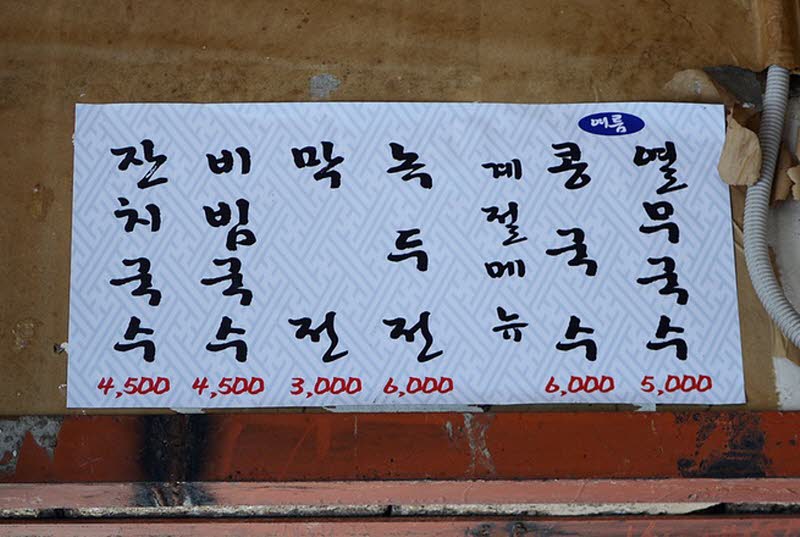 잔치국수
4,500
비빔국수
4,500
막전
3,000
녹두전
6,000
계절메뉴
여름
콩국수
6,000
열무국수
5,000